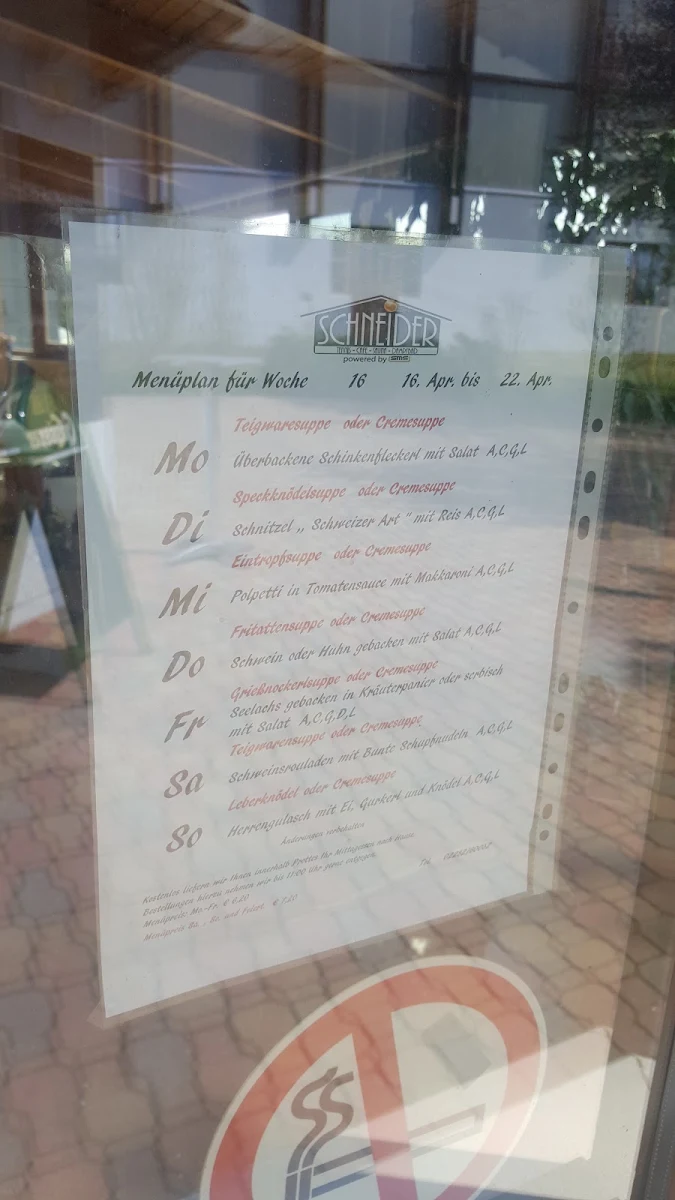 SCHNEIDER
powered by SMS
Menüplan für Woche 16 16. Apr. bis 22. Apr.
Teigwaresuppe oder Cremesuppe
Mo Überbackene Schinkenfleckerl mit Salat A,C,G,L
Speckknödelsuppe oder Cremesuppe
Di Schnitzel „ Schweizer Art " mit Reis A,C,G,L
Eintropfsuppe oder Cremesuppe
Mi Polpetti in Tomatensauce mit Makkaroni A,C,G,L
Fritattensuppe oder Cremesuppe
Do Schwein oder Huhn gebacken mit Salat A,C,G,L
Grießnockerlsuppe oder Cremesuppe
Fr Seelachs gebacken in Kräuterpanier oder serbisch
mit Salat A,C,G,D,L
Teigwarensuppe oder Cremesuppe
Sa Schweinsrouladen mit Bunte Schupfnudeln A,C,G,L
Leberknödel oder Cremesuppe
So Herrengulasch mit Ei, Gurkerl und Knödel A,C,G,L
Änderungen vorbehalten
Kostenlos liefern wir Ihnen innerhalb Ihr Mittagessen nach Hause
Bestellungen hierzu nehmen wir bis 11:00 Uhr gerne entgegen.
Tel.
Menüpreis: Mo.-Fr. € 6.20
Menüpreis Sa. , So. und Feiert. € 7.20